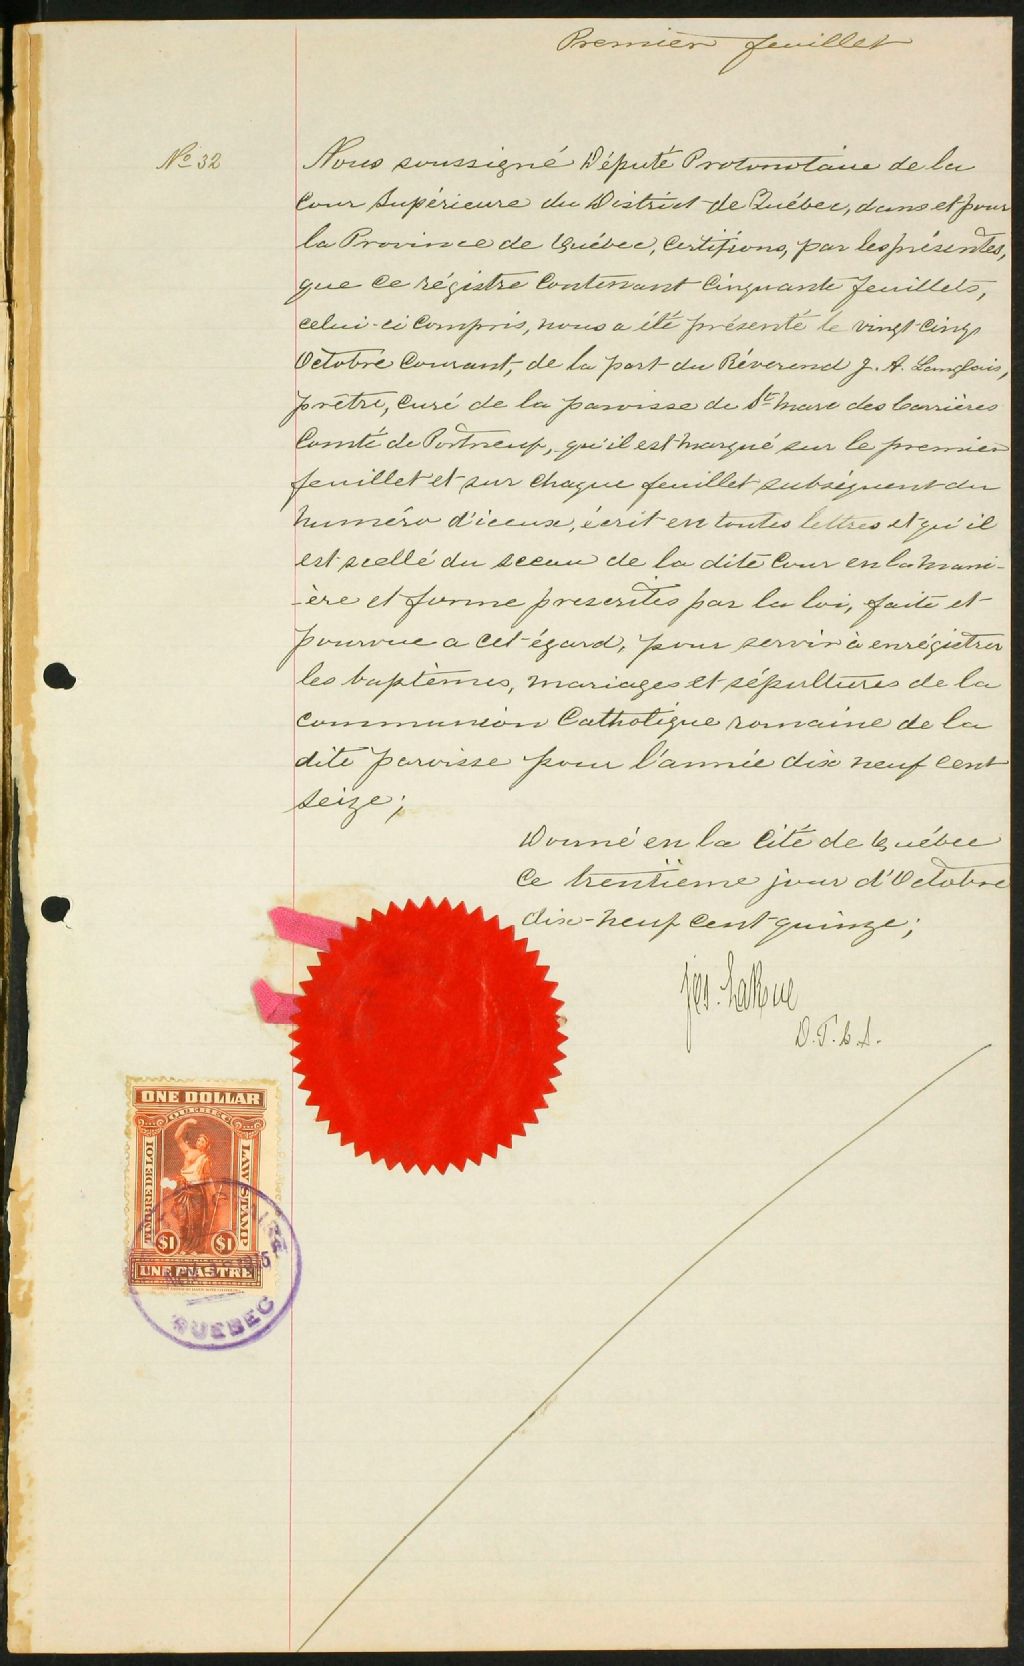 Premier feuillet
No 32
Nous soussigné Député Protonotaire de la
Cour Supérieure du District de Québec, dans et pour
la Province de Québec, Certifions, par les présentes,
que ce régistre Contenant Cinquante feuillets,
celui-ci compris, nous a été présenté le vingt-cinq
Octobre Courant, de la part du Révérend J. A. Langlais,
prêtre, curé de la paroisse de St Marc des Carrières
Comté de Portneuf, qu'il est marqué sur le premier
feuillet et sur chaque feuillet subséquent du
numéro d'iceux, écrit en toutes lettres et qu'il
est scellé du sceau de la dite Cour en la mani-
-ère et forme prescrites par la loi, faite et
pourvue a cet égard, pour servir à enrégistrer
les baptêmes, mariages et sépultures de la
communion Catholique romaine de la
dite paroisse pour l'année dix neuf cent
seize;
Donné en la Cité de Québec
ce trentième jour d'Octobre
dix-neuf cent quinze;
Jos. LaRue
ONE DOLLAR
QUEBEC
TIMBRE DE LOI
LAW STAMP
$1 $1
UNE PIASTRE
QUEBEC